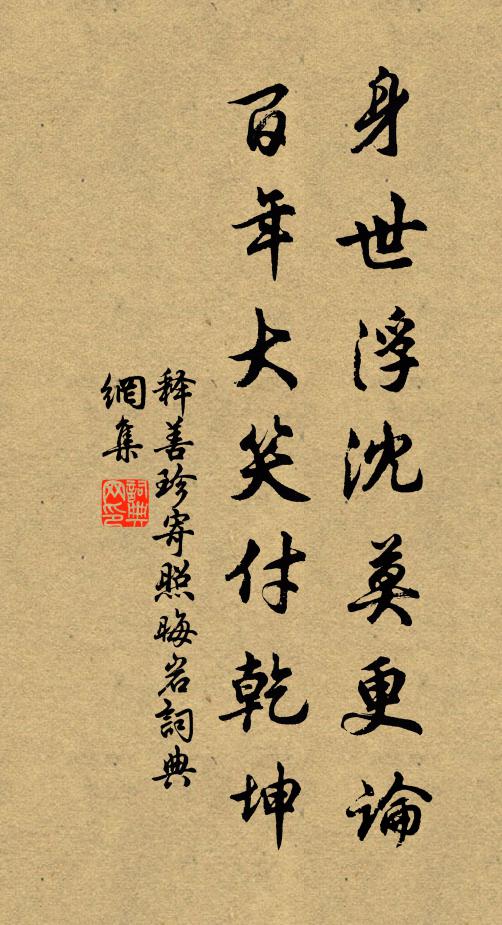 身世浮沈莫更論
百年大笑付乾坤
释善珍寄照晦岩詞典
網集
詞典網印